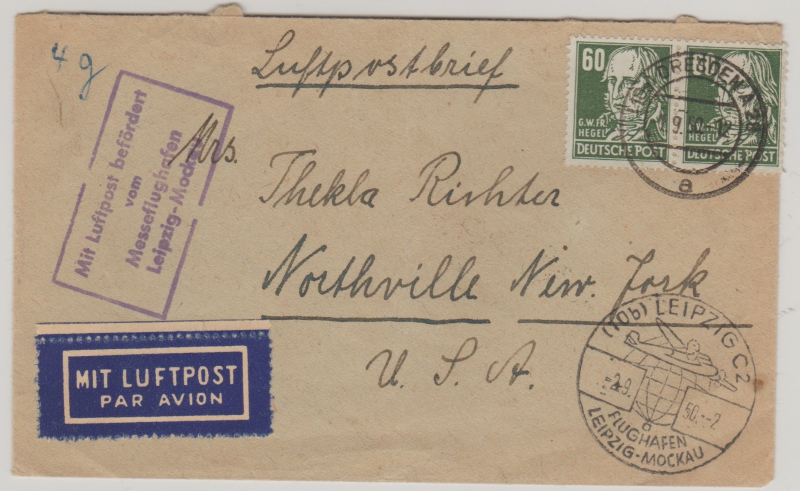 4 g
Luftpostbrief
60
G.W.FR.
HEGEL
DEUTSCHE POST
G.W.FR.
HEGEL
DEUTSCHE POST
DRESDEN A
a
Mit Luftpost befördert
vom
Messeflughafen
Leipzig-Mockau
Mrs.
Thekla Richter
Northville New. York
U. S. A.
MIT LUFTPOST
PAR AVION
(10b) LEIPZIG C2
-2.9. 50.--2
FLUGHAFEN
LEIPZIG-MOCKAU